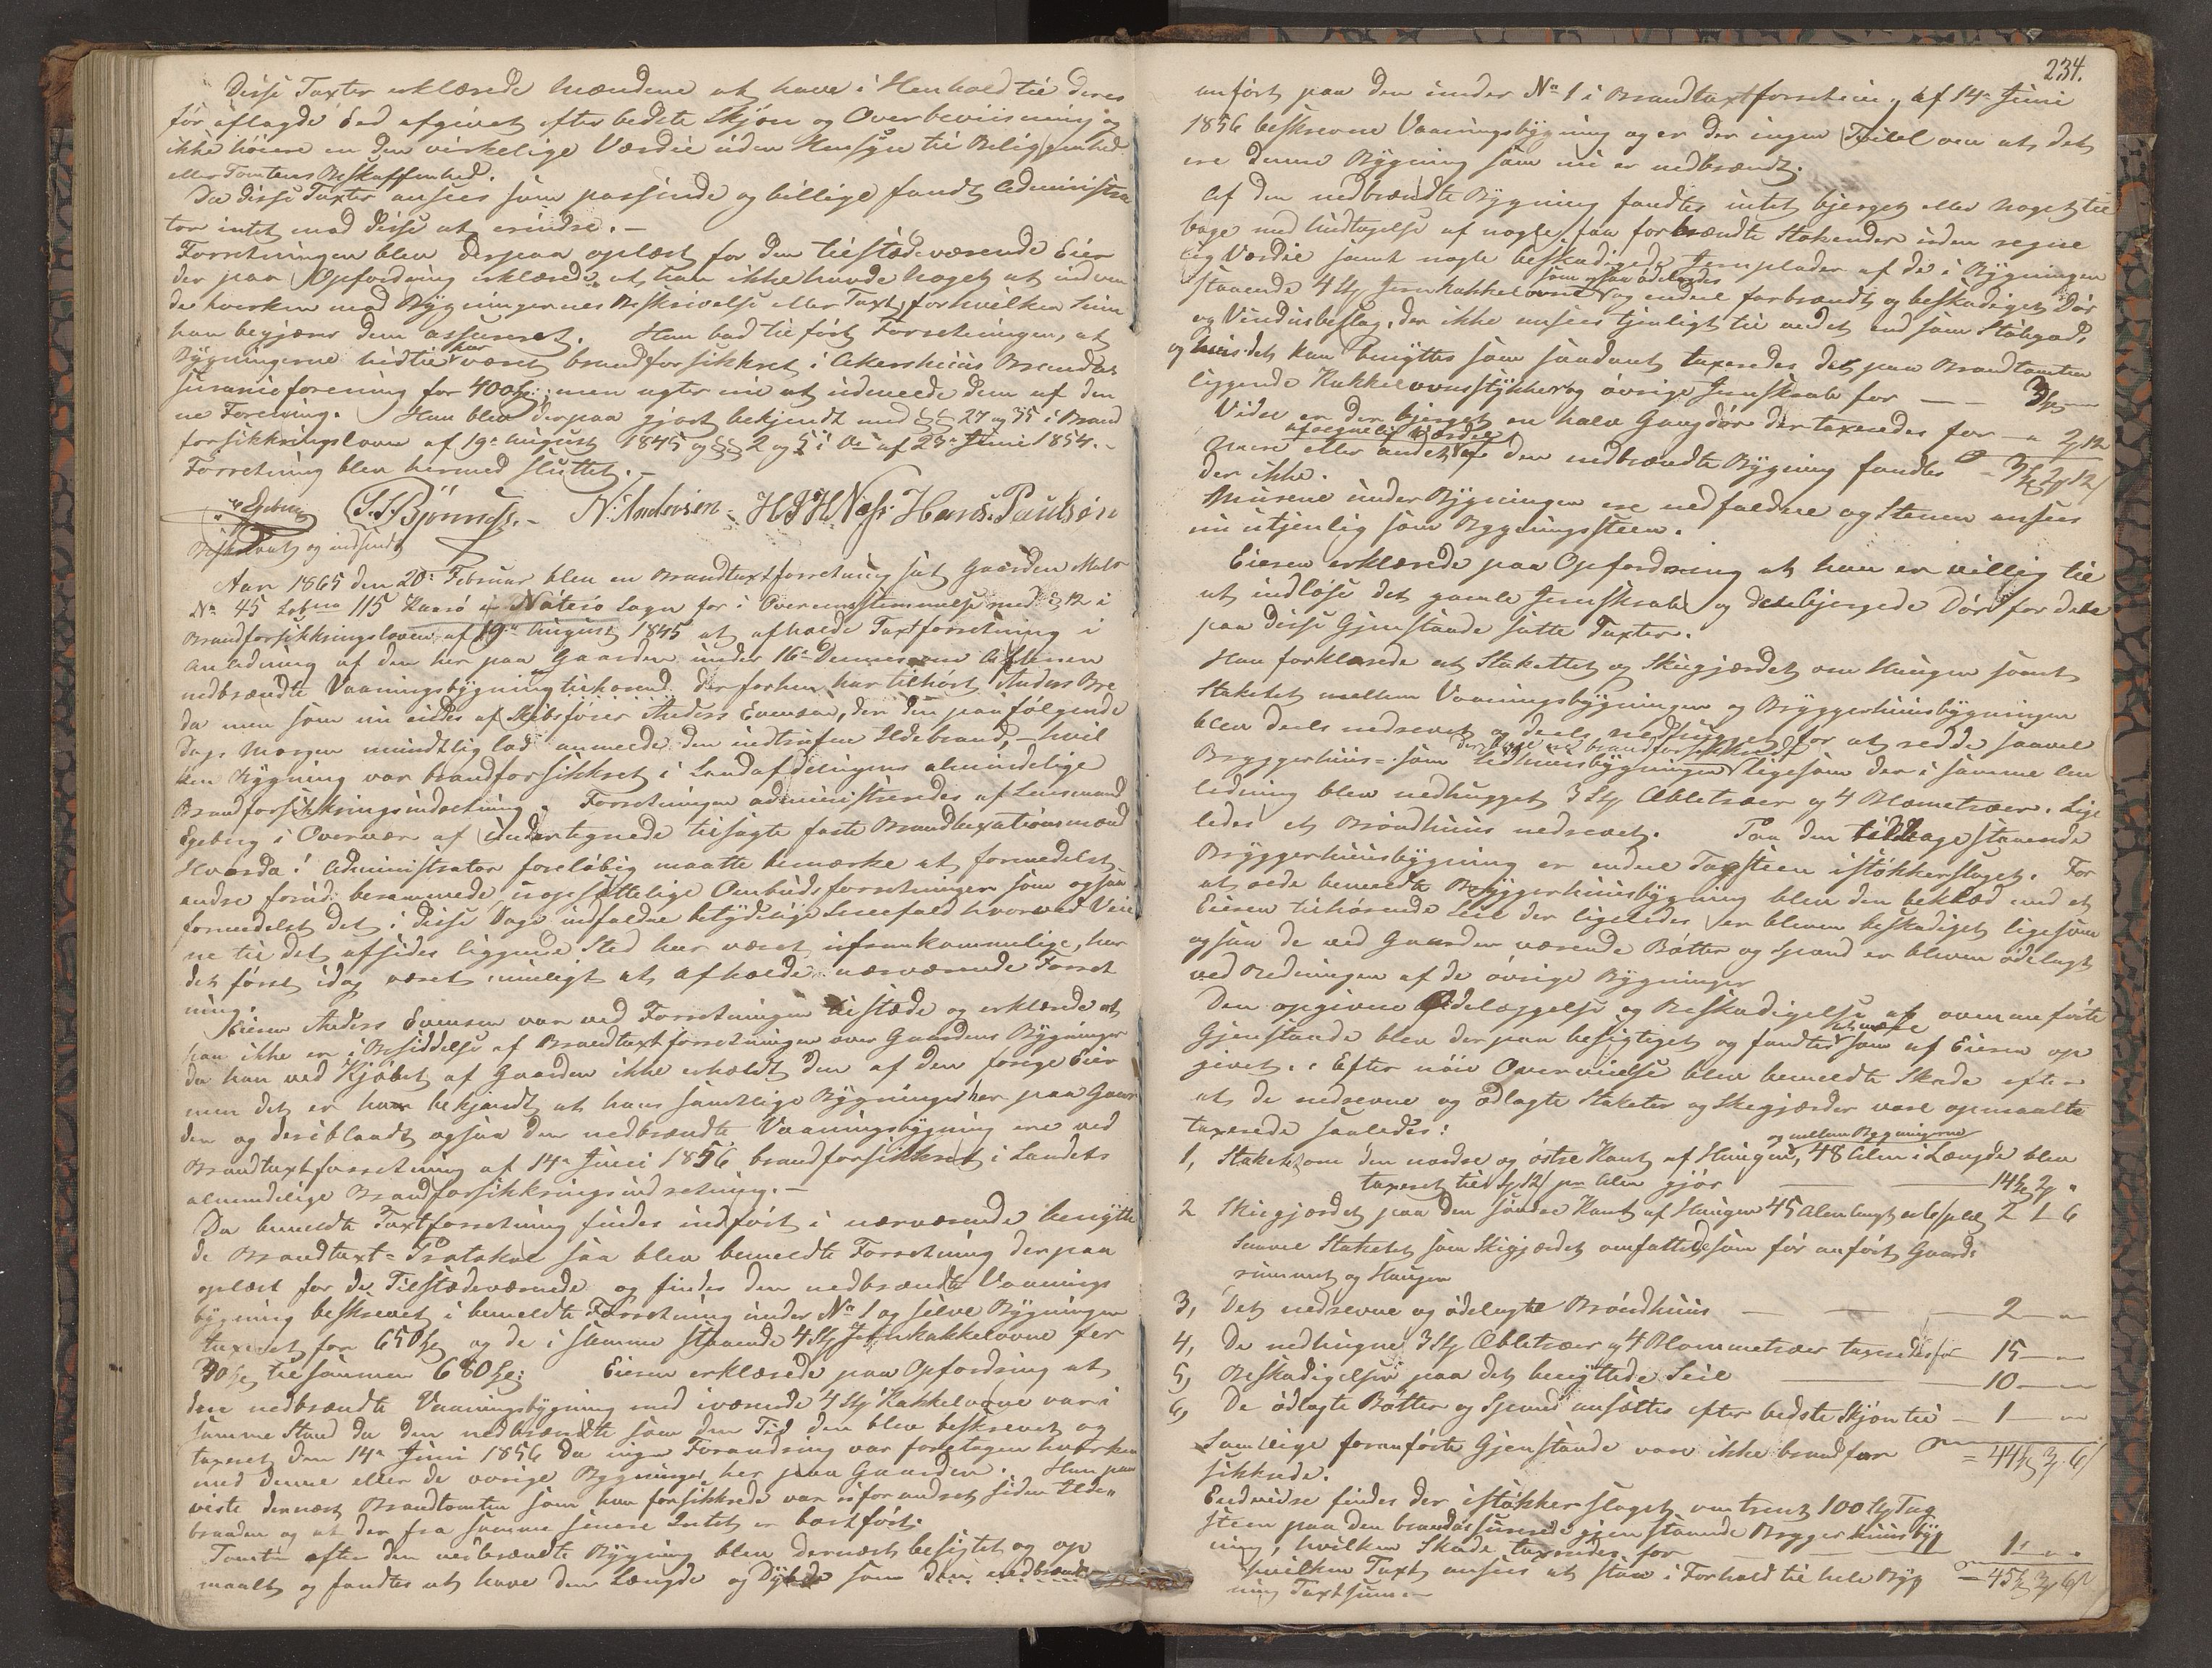 Disse Taxter erklærede Mændene at have i Henhold til deres
før aflagde Eed afgivet efter bedste Skjøn og Overbeviisning og
ikke høiere en den virkelige Værdie uden Hensyn til Beliggenhed
eller Tomtens Beskaffenhed.
Da disse Taxter ansees som passende og billige fandt Administra
tor intet mod disse at erindre. -
Forretningen blev derpaa oplæst for den tilstædeværende Eier
der paa Opfordring erklærede at han ikke havde noget at indven
de hverken mod Bygningernes Beskrivelse eller Taxt, for hvilken Sum
han begjærer dem assureret. Han bad tilført Forretningen, at
Bygningerne hidtil har været brandforsikkret i Akershuus Brandas
suranceforening for 400 men agter nu at udmelde dem af den
ne Forening. Han blev derpaa gjort bekjendt med §§ 27 og 35 i Brand
forsikkringsloven af 19de August 1845 og §§ 2 og 5 i af 23de Juni 1854. -
Forretning blev hermed sluttet. -
Egeberg S. S. Bjørnes. - N. Andersen - H J H Næss. Hans. Paulsøn
Beskrevet og indsendt
Aar 1865 den 20de Februar blev en Brandtaxtforretning sat Gaarden Matr
No 45 Løbno 115 i Nøterø Sogn for i Overensstemmelse med § 12 i
Brandforsikkringsloven af 19de August 1845 at afholde Taxtforretning i
Anledning af den her paa Gaarden under 16de Dennes om Aftenen
nedbrændte Vaaningsbygning tilhørend. der forhen har tilhørt Anders Bre
da men som nu eies af Skibsfører Anders Evensen, der den paafølgende
Dags Morgen mundtlig lod anmelde den indtrufne Ildebrand, - hvil
ken Bygning var brandforsikkret i Landafdelingens almindelige
Brandforsikkringsindretning. Forretningen administreredes af Lensmand
Egeberg i Overvær af undertegnede tilsagte faste Brandtaxationsmænd
Hvorda! Administrator foreløbig maatte bemærke at formedelst
andre forud berammede, uopsættelige Ombudsforretninger som ogsaa
formedelst det i disse Dage indfaldne betydelige Sneefald hvorved Veie
ne til det afsides liggende Sted har været ufremkommelige, har
det først idag været muligt at afholde nærværende Forret
ning.
Eieren Anders Evensen var ved Forretningen tilstæde og erklærede at
han ikke er i Besiddelse af Brandtaxtforretningen over Gaardens Bygninger
da han ved Kjøbet af Gaarden ikke erholdt den af den forrige Eier
men det er ham bekjendt at hans samtlige Bygninger her paa Gaar
den og deriblandt ogsaa den nedbrændte Vaaningsbygning ere ved
Brandtaxtforretning af 14de Juni 1856 brandforsikkret i Landets
almindelige Brandforsikkringsindretning. -
Da bemeldte Taxtforretning findes indført i nærværende benytte
de Brandtaxt-Protokol saa blev bemeldte Forretning derpaa
oplæst for de Tilstædeværende og findes den nedbrændte Vaanings
bygning beskrevet i bemeldte Forretning under No 1 og selve Bygningen
taxeret for 650 og de i samme staaende 4 Stk Jernkakkelovne for
30 tilsammen 680 Eieren erklærede paa Opfordring at
den nedbrændte Vaaningsbygning med iværende 4 Stk Kakkelovne var i
samme Stand da den nedbrændte som den Tid den blev beskrevet og
taxeret den 14de Juni 1856 da ingen Forandring var foretagen hverken
med denne eller de øvrige Bygninger her paa Gaarden. Han paa
viste dernæst Brandtomten som han forsikkrede var uforandret siden Ilde-
branden og at der fra samme senere Intet er bortført.
Tomten efter den nedbrændte Bygning blev dernæst besigtet og op
maalt og fandtes at have den Længde og Dybde som den nedbrændte
234.
anført paa den under No 1 i Brandtaxtforretning af 14de Juni
1856 beskrevne Vaaningsbygning og er der ingen Tvivl om at det
ere denne Bygning som nu er nedbrændt.
Af den nedbrændte Bygning fandtes intet bjerget eller noget til
bage med Undtagelse af nogle faa forbrændte Stokender uden regne
lig Værdie samt nogle beskadigede Jernplader af de i Bygningen
staaende 4 Stk Jernkakkelovne som ogsaa ødelagdes og endeel forbrændt og beskadiget Dør
og Vinduesbeslag, der ikke ansees tjenligt til andet end som Støbegods,
og hvis det kan benyttes som saadant taxeredes det paa Brandtomten
liggende Kakkelovnsstykker og øvrige Jernskrab for - - 3
Videre er der bjerget en halv Gangdør der taxeredes for - " 2 12
mere eller andet af regnelig Værdie af den nedbrændte Bygning fandtes = 3 2 12
der ikke.
Murene under Bygningen ere nedfaldne og Stenen ansees
nu utjenlig som Bygningssteen.
Eieren erklærede paa Opfordring at han er villig til
at indløse det gamle Jernskrab og den bjergede Dør for dete
paa disse Gjenstande satte Taxter.
Han forklarede at Stakettet og Skigjærdet om Haugen samt
Staketet mellem Vaaningsbygningen og Bryggerhuusbygningen
blev deels nedrevet og deels nedhugget for at redde saavel
Bryggerhuus- som Udhuusbygningen der ere brandforsikkrede ligesom der i samme An
ledning blev nedhugget 3 Stk Æbletræer og 4 Blometræer. Lige
ledes et Brøndhuus nedrevet. Paa den tilbagestaaende
Bryggerhuusbygning er endeel Tagsteen istøkkerslaget. For
at rede bemeldte Bryggerhuusbygning blev den beklæd med et
Eieren tilhørende Seil der ligeledes er bleven beskadiget ligesom
ogsaa de ved Gaarden værende Bøtter og Spand er bleven ødelagt
ved Redningen af de øvrige Bygninger
Den opgivne Ødelæggelse og Beskadigelse af ovenanførte
Gjenstande blev derpaa besigtiget og fandtes at være som af Eieren op
givet. Efter nøie Overveielse blev bemeldte Skade efter
at de nedrevne og ødlagte Staketer og Skigjærder vare opmaalte
taxerede saaledes:
1, Staketet om den nordre og østre Kant af Haugen, og mellem Bygningerne 48 Alen i Længde blev
taxeret til 12 pr Alen gjør - - 14 2 "
2 Skigjærdet paa den søndre Kant af Haugen 45 Alen langt 2 1 6
Saavel Staketet som Skigjærdet omfattede som før anført Gaards
rummet og Haugen
3, Det nedrevne og ødelagte Brøndhuus - - - 2 - "
4, De nedhugne 3 Stk Æbletræer og 4 Blommetræer taxeredes for 15 - "
5, Beskadigelsen paa det benyttede Seil - 10 - "
6, De ødlagte Bøtter og Spand ansættes efter bedste Skjøn til - 1 - "
Samtlige foranførte Gjenstande vare ikke brandfor = 44 3 6
sikkrede.
Endvidre findes der istøkkerslaget omtrent 100 Stk Tag
steen paa den brandassurerede gjenstaaende Bryggerhuusbyg
ning, hvilken Skade taxeredes for - 1 " "
hvilken Taxt ansees at staae i Forhold til hele Byg = 45 3 6
ning Taxtsum. -